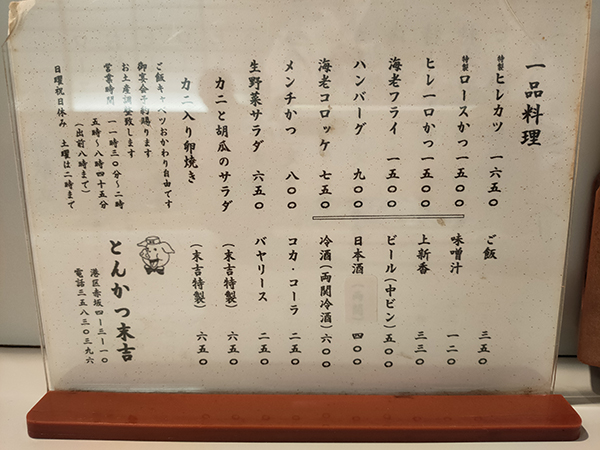 一品料理
特製ヒレカツ 一六五〇
特製ロースかつ 一五〇〇
ヒレ一口かつ 一五〇〇
海老フライ 一五〇〇
ハンバーグ 九〇〇
海老コロッケ 七五〇
メンチかつ 八〇〇
生野菜サラダ 六五〇
カニと胡瓜のサラダ
(末吉特製) 六五〇
カニ入り卵焼き
(末吉特製) 六五〇
ご飯 三五〇
味噌汁 一二〇
上新香 三三〇
ビール(中ビン) 五〇〇
日本酒 四〇〇
冷酒(両関冷酒) 六〇〇
コカ・コーラ 二五〇
バヤリース 二五〇
ご飯キャベツおかわり自由です
御宴会予約賜ります
お土産調整致します
営業時間 一一時三〇分〜二時
五時〜八時四十五分
(出前八時まで)
日曜祝日休み 土曜は二時まで
とんかつ末吉
港区赤坂四ー三ー一〇
電話三五八三〇三九六